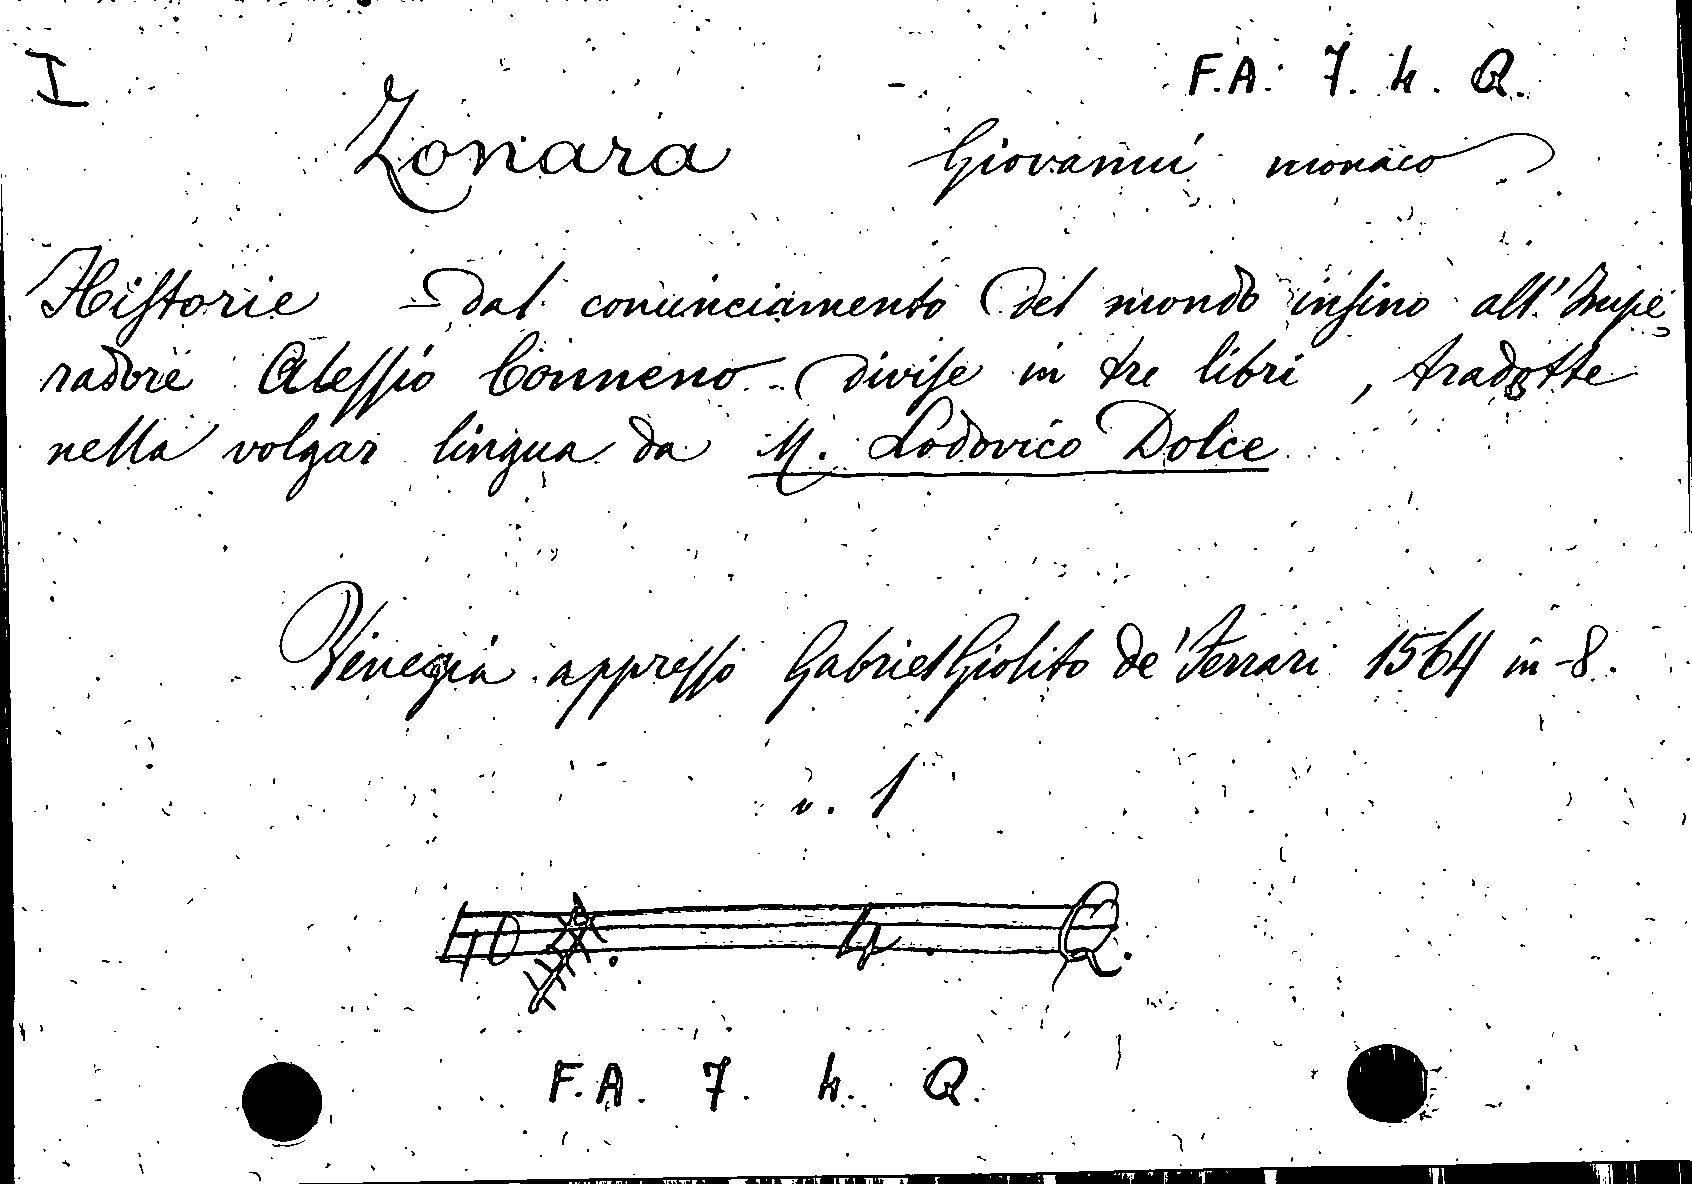 I
F.A. 7. h. Q.
Zonara Giovanni monaco
Historie - dal cominciamento del mondo insino all'Impe
radore Alessio Conneno - divise in tre libri, tradotte
nella volgar lingua da M. Lodovico Dolce
Venegia appresso Gabriel Giolito de' Ferrari 1564 in-8.
v. 1
F.A. 7. h. Q.